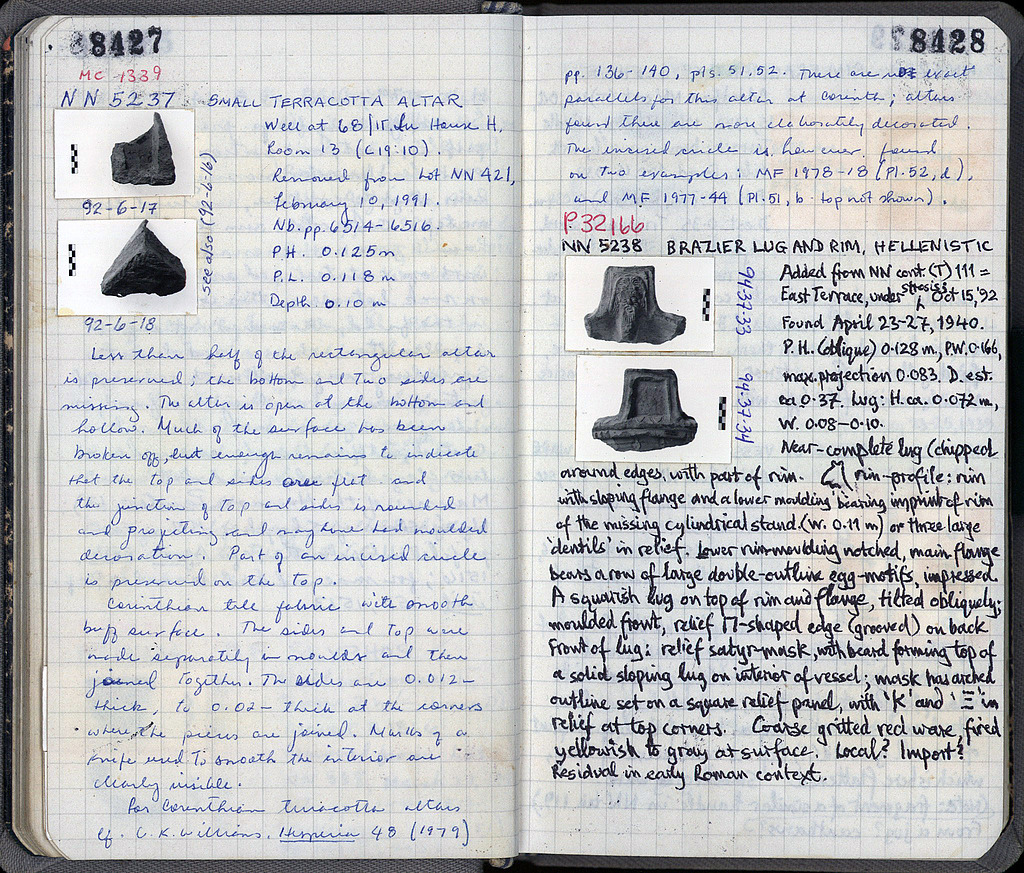 8427
MC 1339
NN 5237 SMALL TERRACOTTA ALTAR
Well at 68/ΙΤ in House H,
Room 13 (C19:10).
Removed from Lot NN 421,
February 10, 1991.
Nb. pp. 6514-6516.
P.H. 0.125m
P.L. 0.118 m
Depth. 0.10 m
92-6-17
see also (92-6-16)
92-6-18
Less than half of the rectangular altar
is preserved; the bottom and two sides are
missing. The altar is open at the bottom and
hollow. Much of the surface has been
broken off, but enough remains to indicate
that the top and sides are flat and
the junction of top and sides is rounded
and projecting and may have had moulded
decoration. Part of an incised circle
is preserved on the top.
Corinthian tile fabric with smooth
buff surface. The sides and top were
made separately in moulds and then
joined together. The sides are 0.012-
thick, to 0.02- thick at the corners
where the pieces are joined. Marks of a
knife used to smooth the interior are
clearly visible.
For Corinthian terracotta altars
cf. C.K. Williams, Hesperia 48 (1979)
8428
pp. 136-140, pls. 51, 52. There are no exact
parallels for this altar at Corinth; altars
found there are more elaborately decorated.
The incised circle is, however, found
on two examples: MF 1978-18 (Pl. 52, d),
and MF 1977-44 (Pl. 51, b. top not shown).
P 32166
NN 5238 BRAZIER LUG AND RIM, HELLENISTIC
94-37-33
94-37-34
Added from NN cont. (T) 111 =
East Terrace, under strosis 3 Oct 15, '92
Found April 23-27, 1940.
P.H. (oblique) 0.128 m, P.W. 0.166,
max. projection 0.083. D. est.
ca 0.37. Lug: H. ca. 0.072 m,
W. 0.08-0.10.
Near-complete lug (chipped
around edges, with part of rim. rim-profile: rim
with sloping flange and a lower moulding bearing imprint of rim
of the missing cylindrical stand. (W. 0.11 m) or three large
'dentils' in relief. Lower rim-moulding notched, main flange
bears a row of large double-outline egg-motifs, impressed.
A squarish lug on top of rim and flange, tilted obliquely;
moulded front, relief Π-shaped edge (grooved) on back
Front of lug: relief satyr-mask, with beard forming top of
a solid sloping lug on interior of vessel; mask has arched
outline set on a square relief panel, with 'K' and 'Ξ' in
relief at top corners. Coarse gritted red ware, fired
yellowish to gray at surface. Local? Import?
Residual in early Roman context.